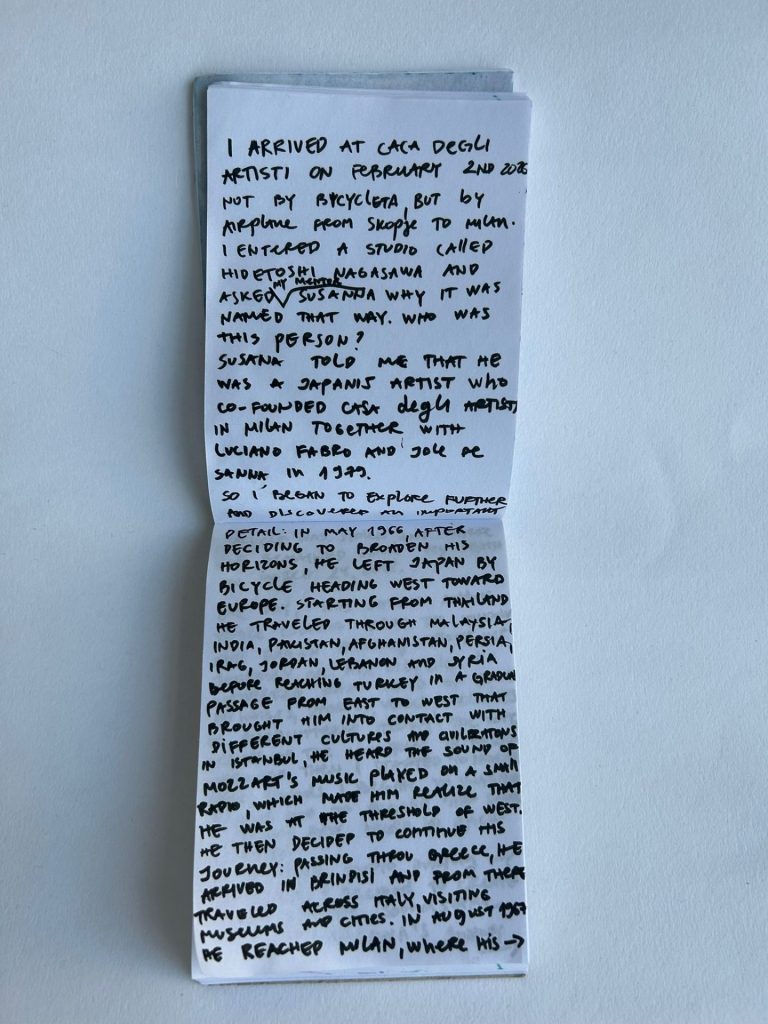 I ARRIVED AT CACA DEGLI
ARTISTI ON FEBRUARY 2ND 2026
NOT BY BYCYCLETA, BUT by
AIRPLANE FROM SKOPJE TO MILAN.
I ENTERED A STUDIO CALLED
HIDETOSHI NAGASAWA AND
MY MENTOR
ASKED SUSANNA WHY IT WAS
NAMED THAT WAY. WHO WAS
THIS PERSON?
SUSANA TOLD ME THAT HE
WAS A JAPANIS ARTIST WHO
CO-FOUNDED CASA degli ARTISTI
IN MILAN TOGETHER WITH
LUCIANO FABRO AND JOLE DE
SANNA in 1979.
SO I BEGAN TO EXPLORE FURTHER
AND DISCOVERED AN IMPORTANT
DETAIL: IN MAY 1966, AFTER
DECIDING TO BROADEN HIS
HORIZONS, HE LEFT JAPAN BY
BICYCLE HEADING WEST TOWARD
EUROPE. STARTING FROM THAILAND
HE TRAVELED THROUGH MALAYSIA,
INDIA, PAKISTAN, AFGHANISTAN, PERSIA,
IRAG, JORDAN, LEBANON AND SYRIA
BEFORE REACHING TURKEY IN A GRADUAL
PASSAGE FROM EAST TO WEST THAT
BROUGHT HIM INTO CONTACT WITH
DIFFERENT CULTURES AND CIVILIZATIONS
IN ISTANBUL, HE HEARD THE SOUND OF
MOZZART'S MUSIC PLAYED ON A SMALL
RADIO, WHICH MADE HIM REALIZE THAT
HE WAS AT THE THRESHOLD OF WEST.
HE THEN DECIDED TO CONTINUE HIS
JOURNEY: PASSING THROU GREECE, HE
ARRIVED IN BRINDISI AND FROM THERE
TRAVELED ACROSS ITALY, VISITING
MUSEUMS AND CITIES. IN AUGUST 1967
HE REACHED MILAN, WHERE HIS →